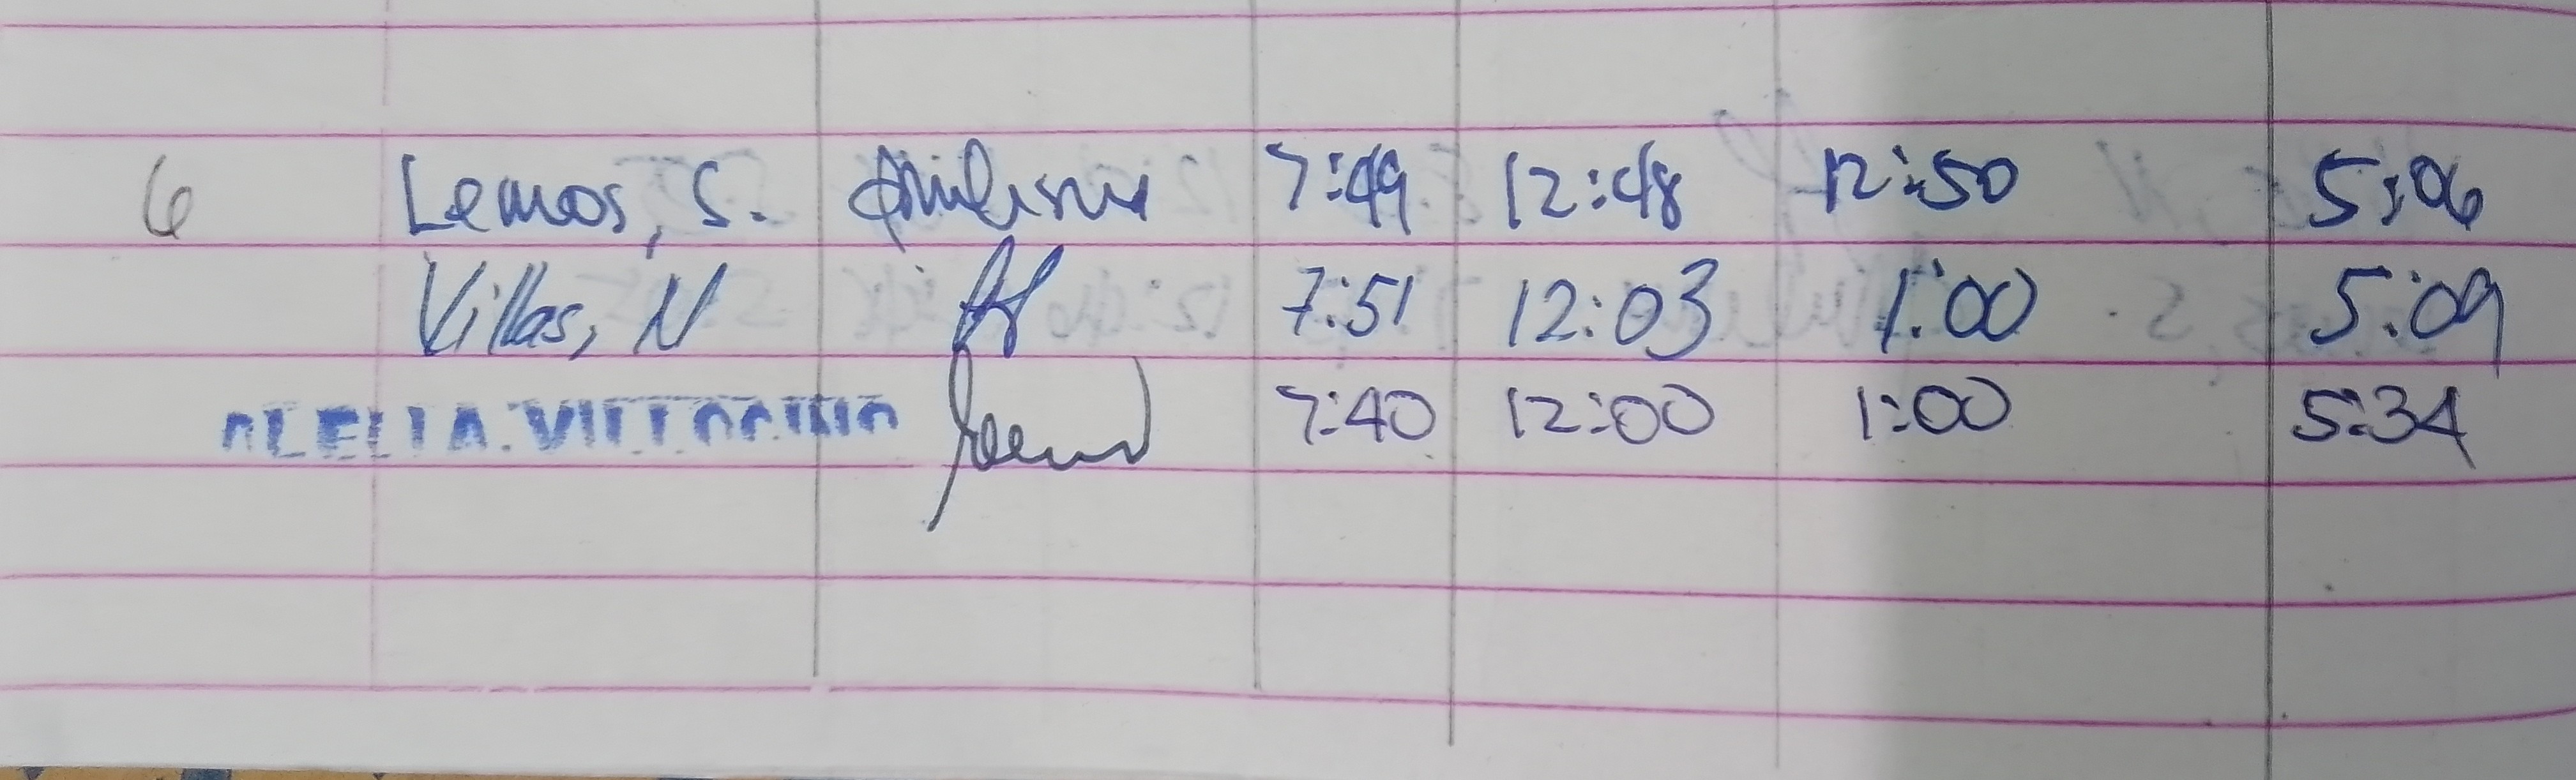 6 Lemos, S. 7:49 12:48 12:50 5:06
Villas, N 7:51 12:03 1:00 5:09
7:40 12:00 1:00 5:34